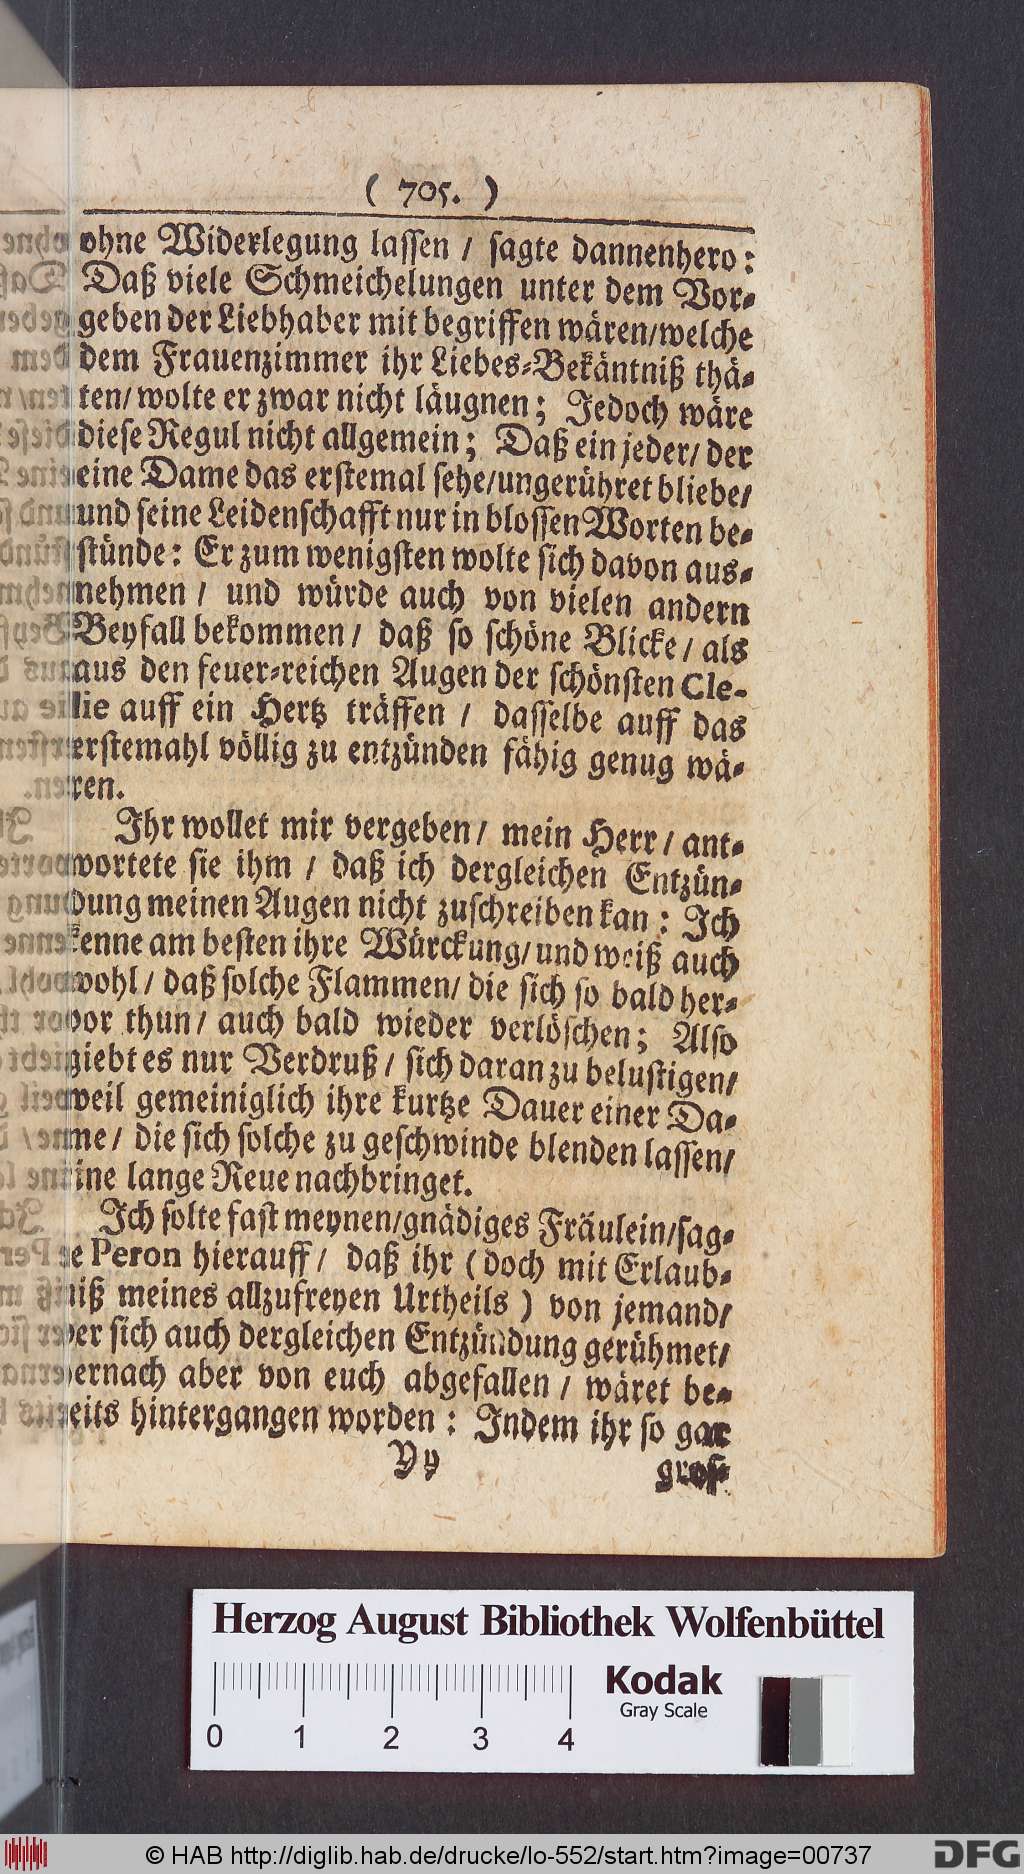 ( 705. )
ohne Widerlegung lassen / sagte dannenhero:
Daß viele Schmeichelungen unter dem Vor-
geben der Liebhaber mit begriffen wären/welche
dem Frauenzimmer ihr Liebes-Bekäntniß thä-
ten/ wolte er zwar nicht läugnen; Jedoch wäre
diese Regul nicht allgemein; Daß ein jeder/ der
eine Dame das erstemal sehe/ungerühret bliebe/
und seine Leidenschafft nur in blossen Worten be-
stünde: Er zum wenigsten wolte sich davon aus-
nehmen / und würde auch von vielen andern
Beyfall bekommen/ daß so schöne Blicke/ als
aus den feuer-reichen Augen der schönsten Cle-
lie auff ein Hertz träffen / dasselbe auff das
erstemahl völlig zu entzünden fähig genug wä-
ren.
Ihr wollet mir vergeben/ mein Herr/ ant-
wortete sie ihm / daß ich dergleichen Entzün-
dung meinen Augen nicht zuschreiben kan: Ich
kenne am besten ihre Würckung/ und weiß auch
wohl/ daß solche Flammen/ die sich so bald her-
vor thun/ auch bald wieder verlöschen; Also
giebt es nur Verdruß/ sich daran zu belustigen/
weil gemeiniglich ihre kurtze Dauer einer Da-
me/ die sich solche zu geschwinde blenden lassen/
eine lange Reue nachbringet.
Ich solte fast meynen/gnädiges Fräulein/sag-
te Peron hierauff/ daß ihr (doch mit Erlaub-
niß meines allzufreyen Urtheils) von jemand/
der sich auch dergleichen Entzündung gerühmet/
hernach aber von euch abgefallen / wäret be-
reits hintergangen worden: Indem ihr so gar
Yy gros-
Herzog August Bibliothek Wolfenbüttel
Kodak
Gray Scale
0 1 2 3 4
© HAB http://diglib.hab.de/drucke/lo-552/start.htm?image=00737
DFG